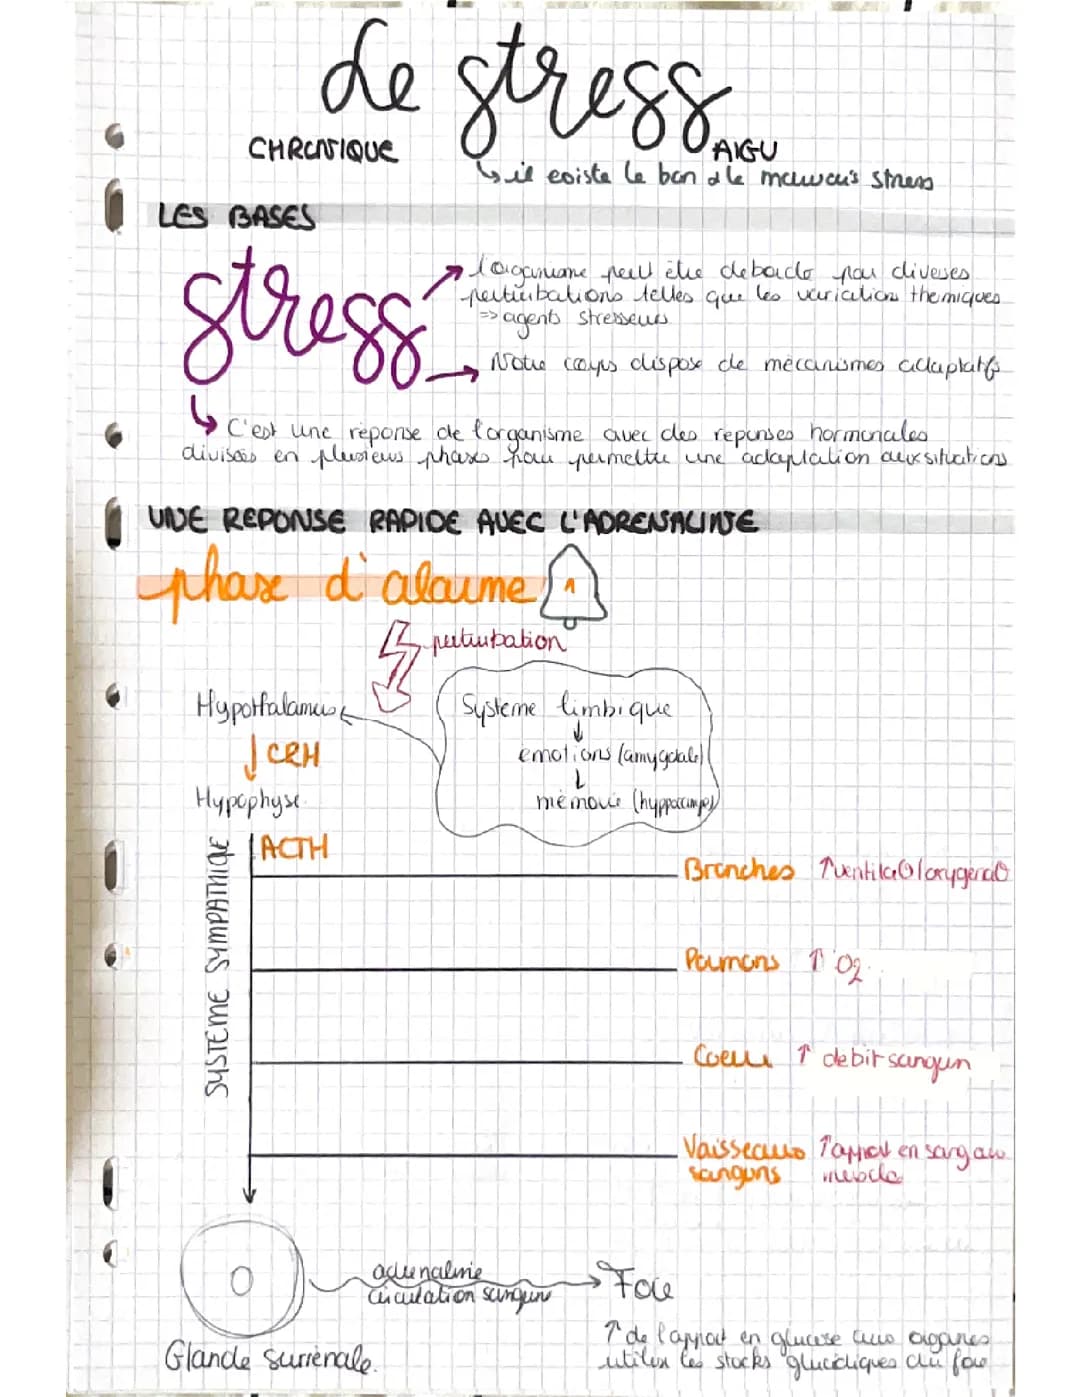 Le stress
CHRONIQUE
AIGU
↳ il existe le bon & le mauvais stress
LES BASES
stress
l'organisme peut être debordé par diverses
perturbations telles que les variations thermiques
=> agents stresseurs
Notre corps dispose de mécanismes adaptatifs
C'est une réponse de l'organisme avec des reponses hormonales
divisées en plusieurs phases pour permettre une adaptation aux situations
UNE REPONSE RAPIDE AVEC L'ADRENALINE
phase d'alarme 1
perturbation
Hypothalamus
Système limbique
↓ CRH
émotions (amygdale)
Hypophyse
mémoire (hyppocampe)
SYSTEME SYMPATHIQUE
ACTH
Bronches ↑ventila⊖/oxygéna⊖
Poumons ↑ O2
Coeur ↑ debit sanguin
Vaisseaux ↑apport en sang au
sanguins muscle
adrenaline
circulation sanguine
Foie
Glande surrénale.
↑ de l'apport en glucose aux organes
utilise les stocks glucidiques du foie